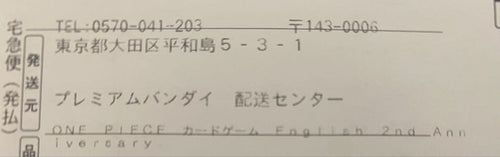 TEL:0570-041-203 〒143-0006
東京都大田区平和島5-3-1
プレミアムバンダイ 配送センター
ONE PIECE カードゲーム English 2nd Ann
iversary
宅急便(発払)
発送元
品